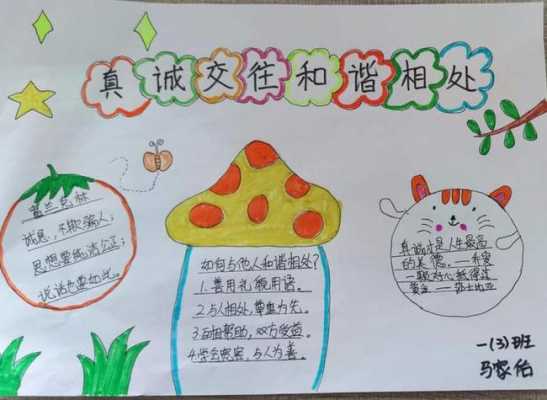 真诚交往和谐相处
富兰克林
诚恳，不欺骗人；
思想要纯洁公正；
说话也要如此。
如何与他人和谐相处？
1.善用礼貌用语。
2.与人相处，尊重为先。
3.互相帮助，双方受益。
4.学会宽容，与人为善。
真诚才是人生最高
的美德。——乔叟
一颗好心抵得过
黄金——莎士比亚
一（3）班
马家佑